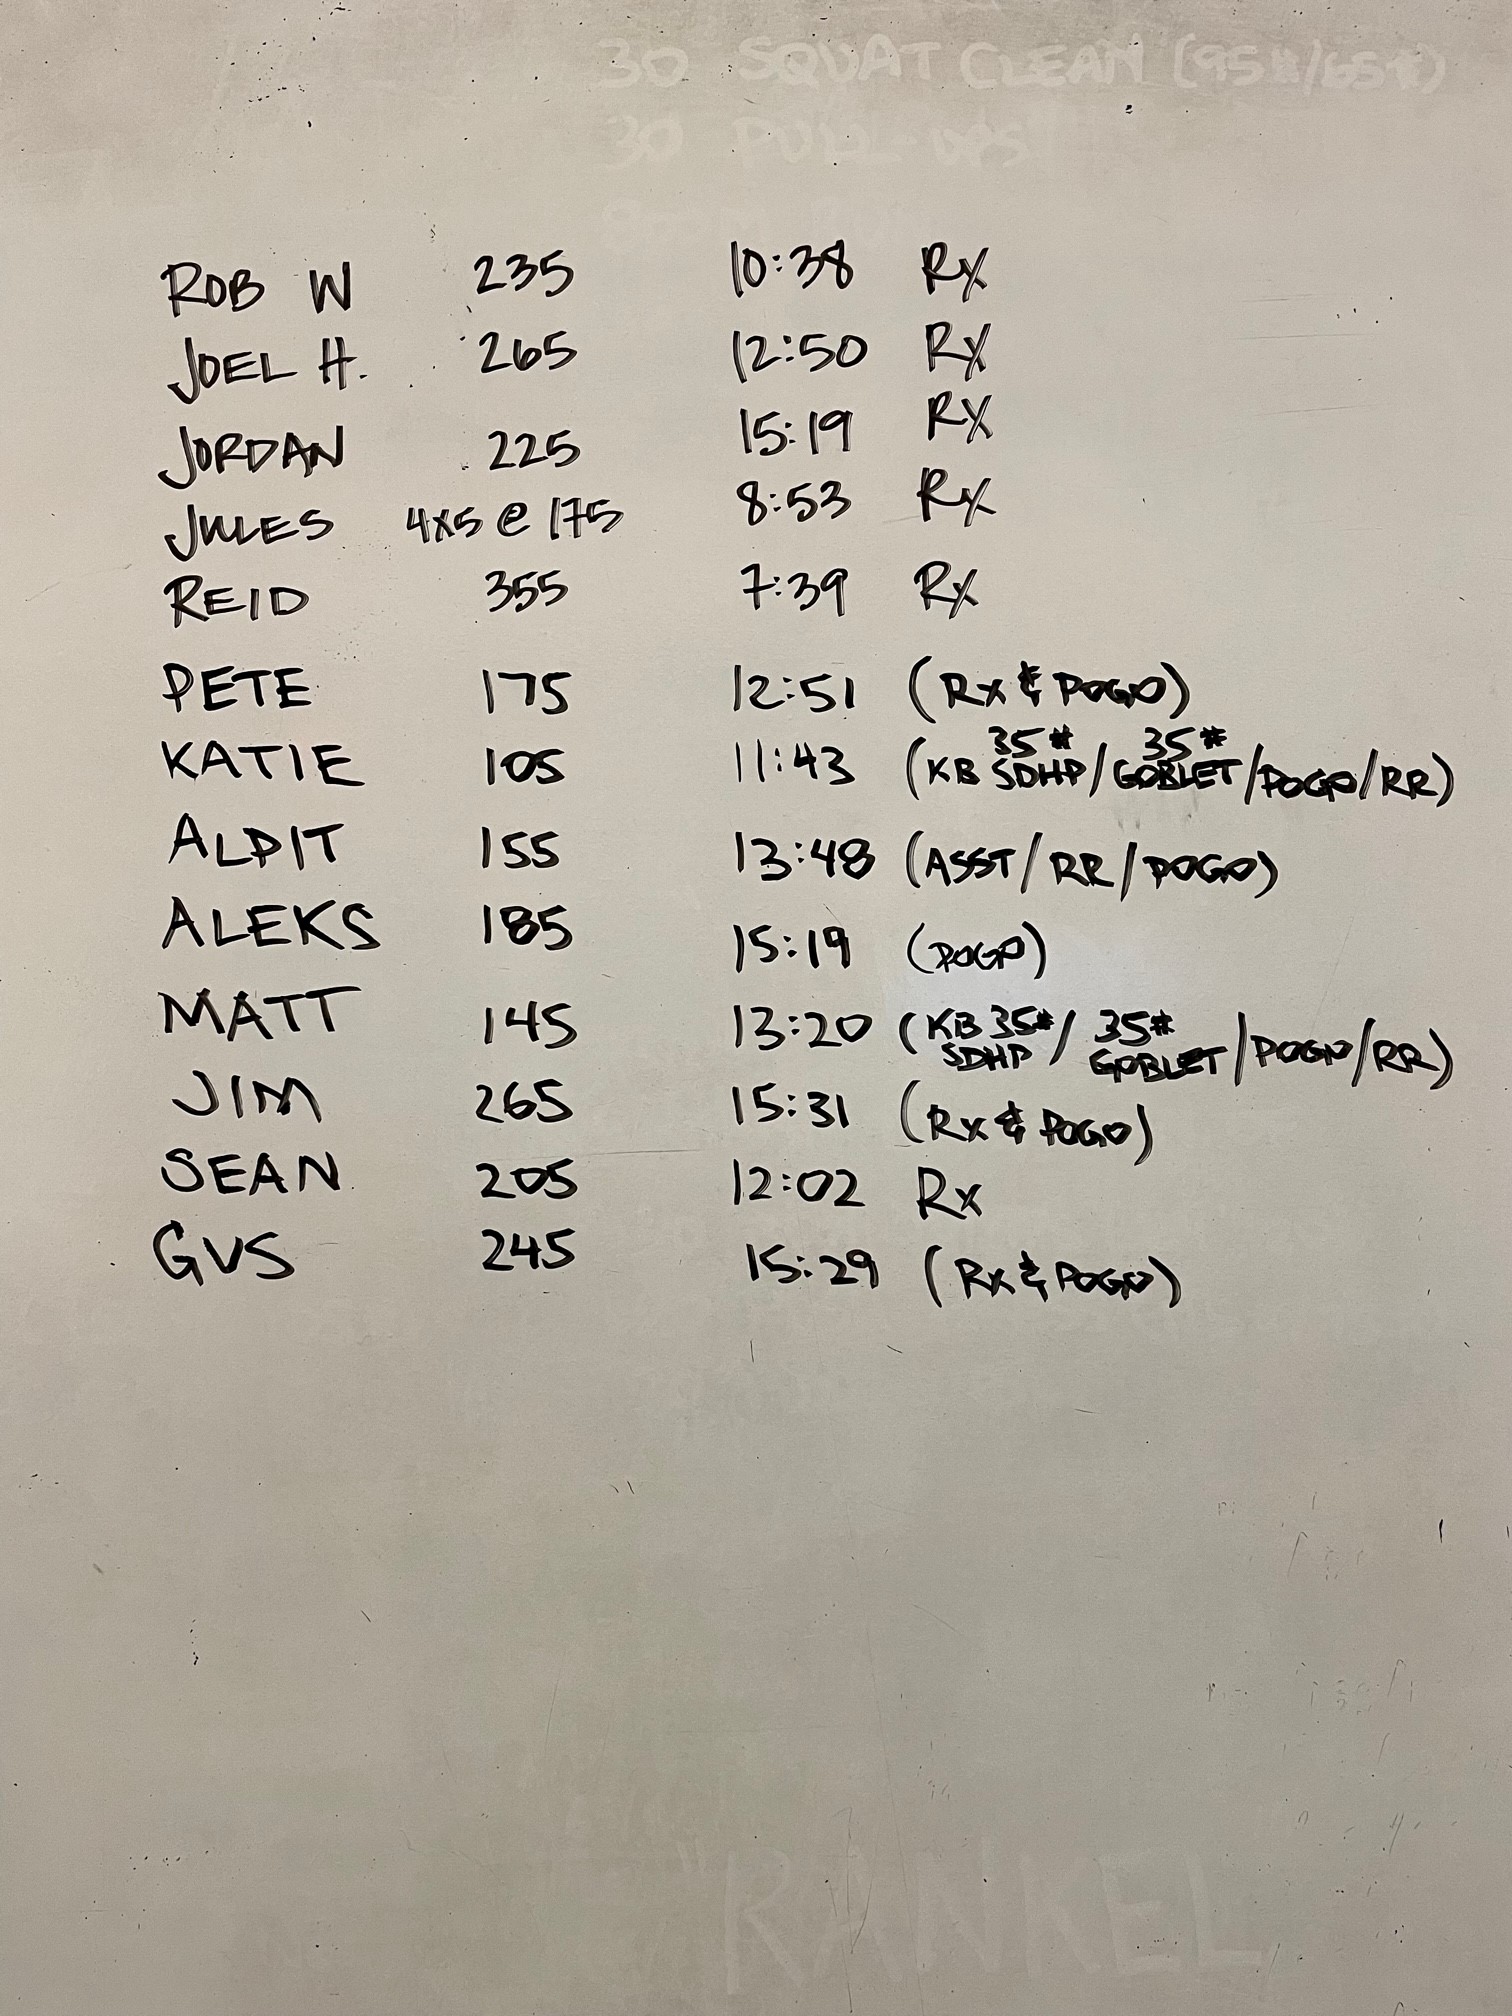 30 SQUAT CLEAN (95#/65#)
30 PULL-UPS
ROB W 235 10:38 Rx
JOEL H. 265 12:50 Rx
JORDAN 225 15:19 Rx
JULES 4x5 @ 175 8:53 Rx
REID 355 7:39 Rx
PETE 175 12:51 (Rx & POGO)
KATIE 105 11:43 (KB 35# SDHP/35# GOBLET/POGO/RR)
ALPIT 155 13:48 (ASST/RR/POGO)
ALEKS 185 15:19 (POGO)
MATT 145 13:20 (KB 35# SDHP/35# GOBLET/POGO/RR)
JIM 265 15:31 (Rx & POGO)
SEAN 205 12:02 Rx
GUS 245 15:29 (Rx & POGO)
"RANKEL